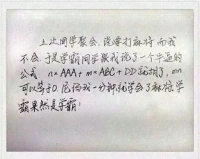 上次同学聚会，说要打麻将而我
不会，于是学霸同学跟我说了一个牛逼的
公式 n×AAA+m×ABC+DD就胡了，mn
可以等于0，尼玛我一分钟就学会了麻将，学
霸果然是学霸！